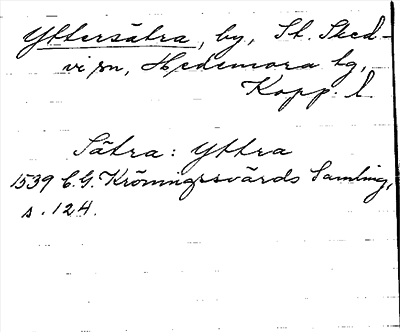 Yttersätra, by, St. Sked-
vi sn, Hedemora tg,
Kopp. l.
Sätra: Yttra
1539 C.G. Kröningssvärds Samling,
s. 124.